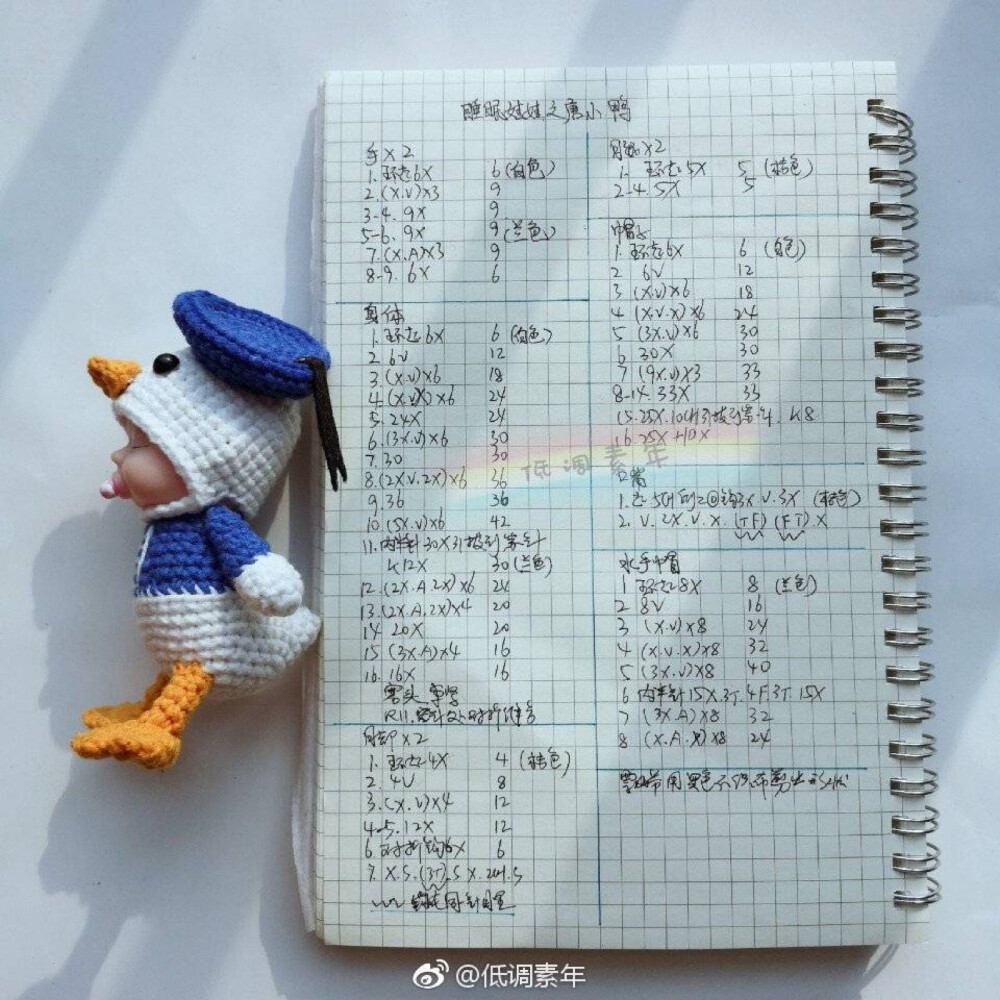 睡眠娃娃之唐小鸭
手×2
1.环起6X 6(白色)
2.(X.V)×3 9
3-4. 9X 9
5-6. 9X 9(兰色)
7.(X.A)×3 9
8-9. 6X 6
身体
1.环起6X 6(白色)
2.6V 12
3.(X.V)×6 18
4.(X.V.X)×6 24
5.24X 24
6.(3X.V)×6 30
7.30 30
8.(2X.V.2X)×6 36
9.36 36
10.(5X.V)×6 42
11.内半针30X引拔到第一针
30(兰色)
12.(2X.A.2X)×6 24
13.(2X.A.2X)×4 20
14 20X 20
15 (3X.A)×4 16
16.16X 16
脚×2
1.环起4X 4 (桔色)
2.4V 8
3.(X.V)×4 12
4-5.12X 12
6.对折钩6X 6
7.X.S.(3T).S.X.2CH.S
同针目里
腿×2
1. 环起5X 5 (桔色)
2-4.5X 5
帽子
1.环起6X 6 (白色)
2 6V 12
3 (X.V)×6 18
4 (X.V.X)×6 24
5 (3X.V)×6 30
6 30X 30
7 (9X.V)×3 33
8-14.33X 33
15.25X.10CH引拔到第一针. K8
16.25X+10X
低调素年
嘴
1.起5CH 3X.V.3X (桔色)
2. V. 2X. V. X. (TF) (FT).X
水手帽
1 环起8X 8 (兰色)
2 8V 16
3 (X.V)×8 24
4 (X.V.X)×8 32
5 (3X.V)×8 40
6 内半针15X.3T.4F.3T.15X
7 (3X.A)×8 32
8 (X.A.X)×8 24
用黑色不织布剪出形状
@低调素年